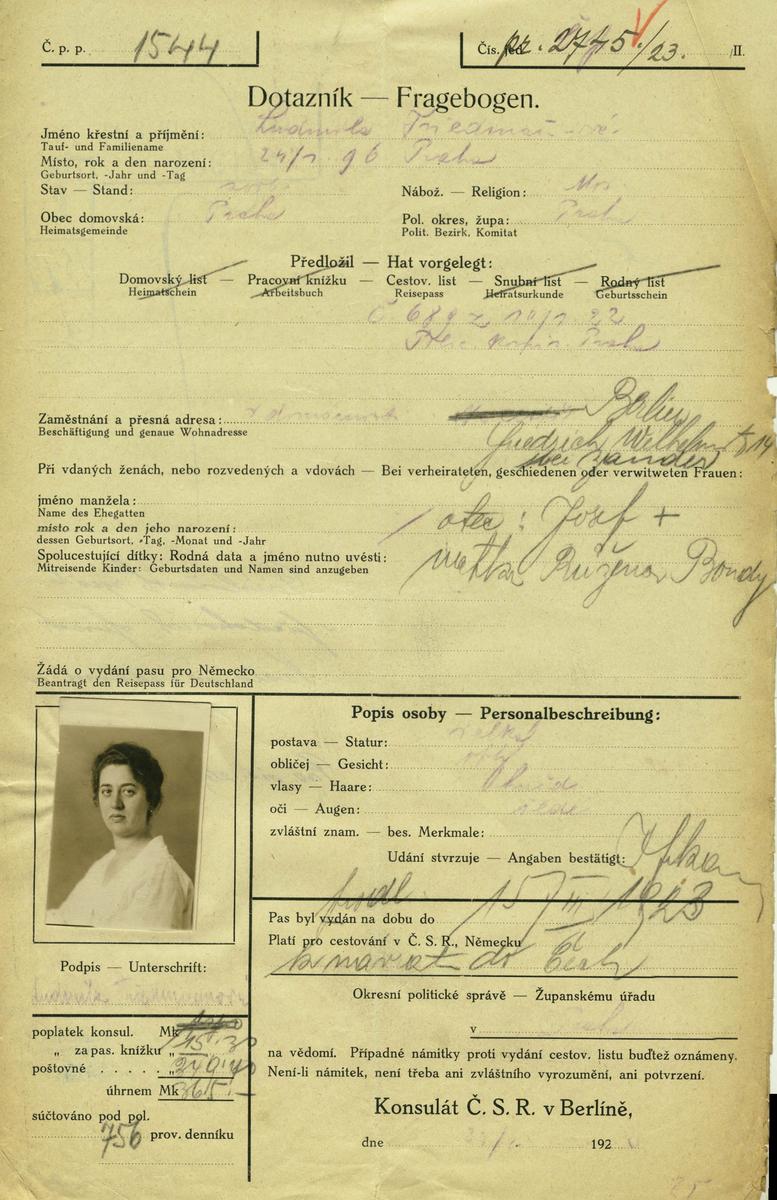 Č. p. p. 1544
Čís. pr. 2745/23. /II.
Dotazník — Fragebogen.
Jméno křestní a příjmění: Ludmila
Tauf- und Familiename
Místo, rok a den narození: 24/1. 96 Praha
Geburtsort, -Jahr und -Tag
Stav — Stand: Nábož. — Religion: Mos.
Obec domovská: Praha Pol. okres, župa: Praha
Heimatsgemeinde Polit. Bezirk, Komitat
Předložil — Hat vorgelegt:
Domovský list — Pracovní knížku — Cestov. list — Snubní list — Rodný list
Heimatschein Arbeitsbuch Reisepass Heiratsurkunde Geburtsschein
Praha
Zaměstnání a přesná adresa: Berlin
Beschäftigung und genaue Wohnadresse
Friedrich Wilhelm 14
bei
Při vdaných ženách, nebo rozvedených a vdovách — Bei verheirateten, geschiedenen oder verwitweten Frauen:
jméno manžela:
Name des Ehegatten
otec: Josef +
místo rok a den jeho narození:
dessen Geburtsort, -Tag, -Monat und -Jahr
Spolucestující dítky: Rodná data a jméno nutno uvésti:
Mitreisende Kinder: Geburtsdaten und Namen sind anzugeben
matka Růžena Bondy
Žádá o vydání pasu pro Německo
Beantragt den Reisepass für Deutschland
Popis osoby — Personalbeschreibung:
postava — Statur: velká
obličej — Gesicht:
vlasy — Haare:
oči — Augen:
zvláštní znam. — bes. Merkmale:
Udání stvrzuje — Angaben bestätigt:
Pas byl vydán na dobu do 15/III 1923
Platí pro cestování v Č. S. R., Německu
k návrat do Čech
Okresní politické správě — Županskému úřadu
v Praha
na vědomí. Případné námitky proti vydání cestov. listu buďtež oznámeny.
Není-li námitek, není třeba ani zvláštního vyrozumění, ani potvrzení.
Konsulát Č. S. R. v Berlíně,
dne 192
Podpis — Unterschrift:
poplatek konsul. Mk
„ za pas. knížku „
poštovné . . . . . „
úhrnem Mk 365.—
súčtováno pod pol.
756 prov. denníku